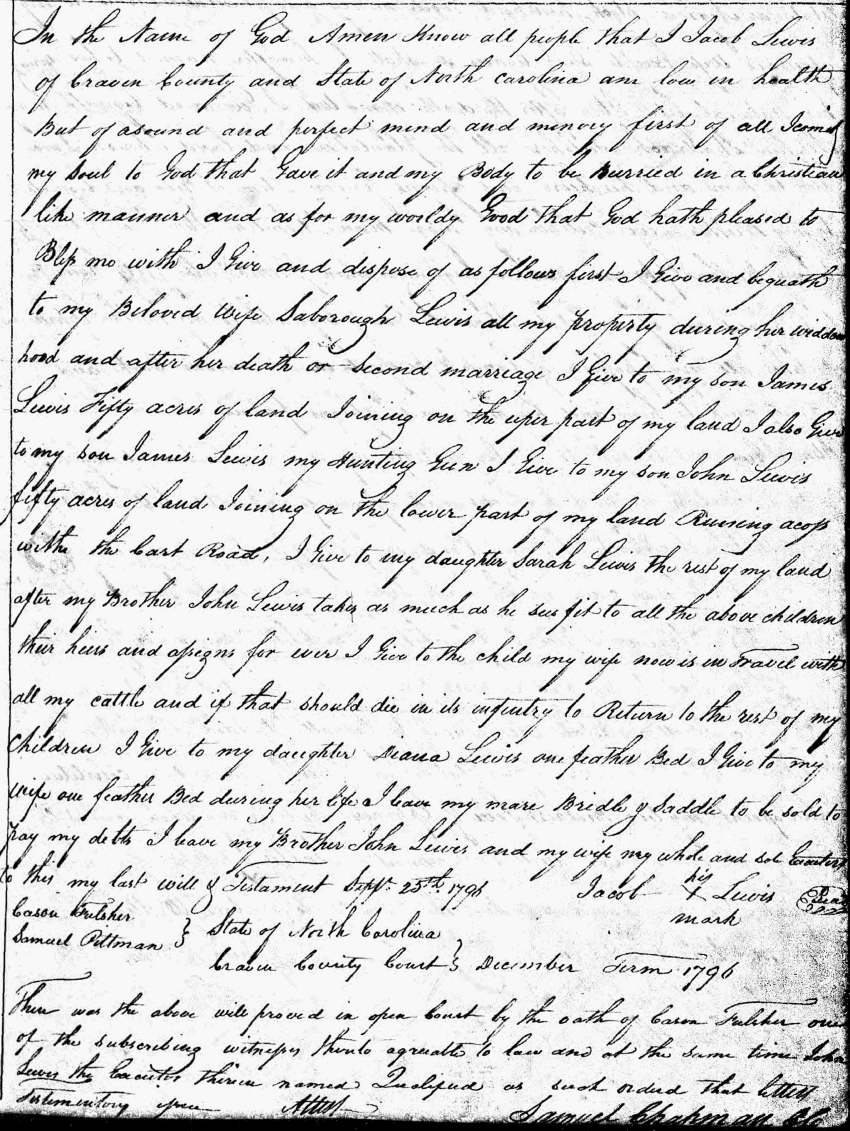 In the Name of God Amen Know all people that I Jacob Lewis
of Craven County and State of North Carolina am low in health
But of a sound and perfect mind and memory first of all I
my soul to God that Gave it and my Body to be Burried in a Christian
like manner and as for my worldy Good that God hath pleased to
Bless me with I Give and dispose of as follows first I Give and bequath
to my Beloved Wife Saborough Lewis all my property during her widdow
hood and after her death or second marriage I Give to my son James
Lewis Fifty acres of land Joining on the uper part of my land I also Give
to my son James Lewis my Hunting Gun I Give to my son John Lewis
fifty acres of land Joining on the lower part of my land Runing across
withe the Cart Road, I Give to my daughter Sarah Lewis the rest of my land
after my Brother John Lewis takes as much as he sees fit to all the above children
their heirs and assigns for ever I Give to the child my wife now is in Travel with
all my cattle and if that should die in its infentry to Return to the rest of my
Children I Give to my daughter Deana Lewis one feather Bed I Give to my
Wife one feather Bed during her life I leave my mare Bridle & Saddle to be sold to
Pay my debts I leave my Brother John Lewis and my wife my whole and sole
to this my last will & Testament Sept. 25th 1796 Jacob his X mark Lewis Seal
Cason Fulsher
Samuel Pittman } State of North Carolina
Craven County Court } December Term 1796
Then was the above will proved in open Court by the oath of Cason Fulsher one
of the subscribing witnesses thereto agreable to law and at the same time John
Lewis the Executor therein named Qualifued as such orderd that letters
Testementory Attest
Samuel Chapman